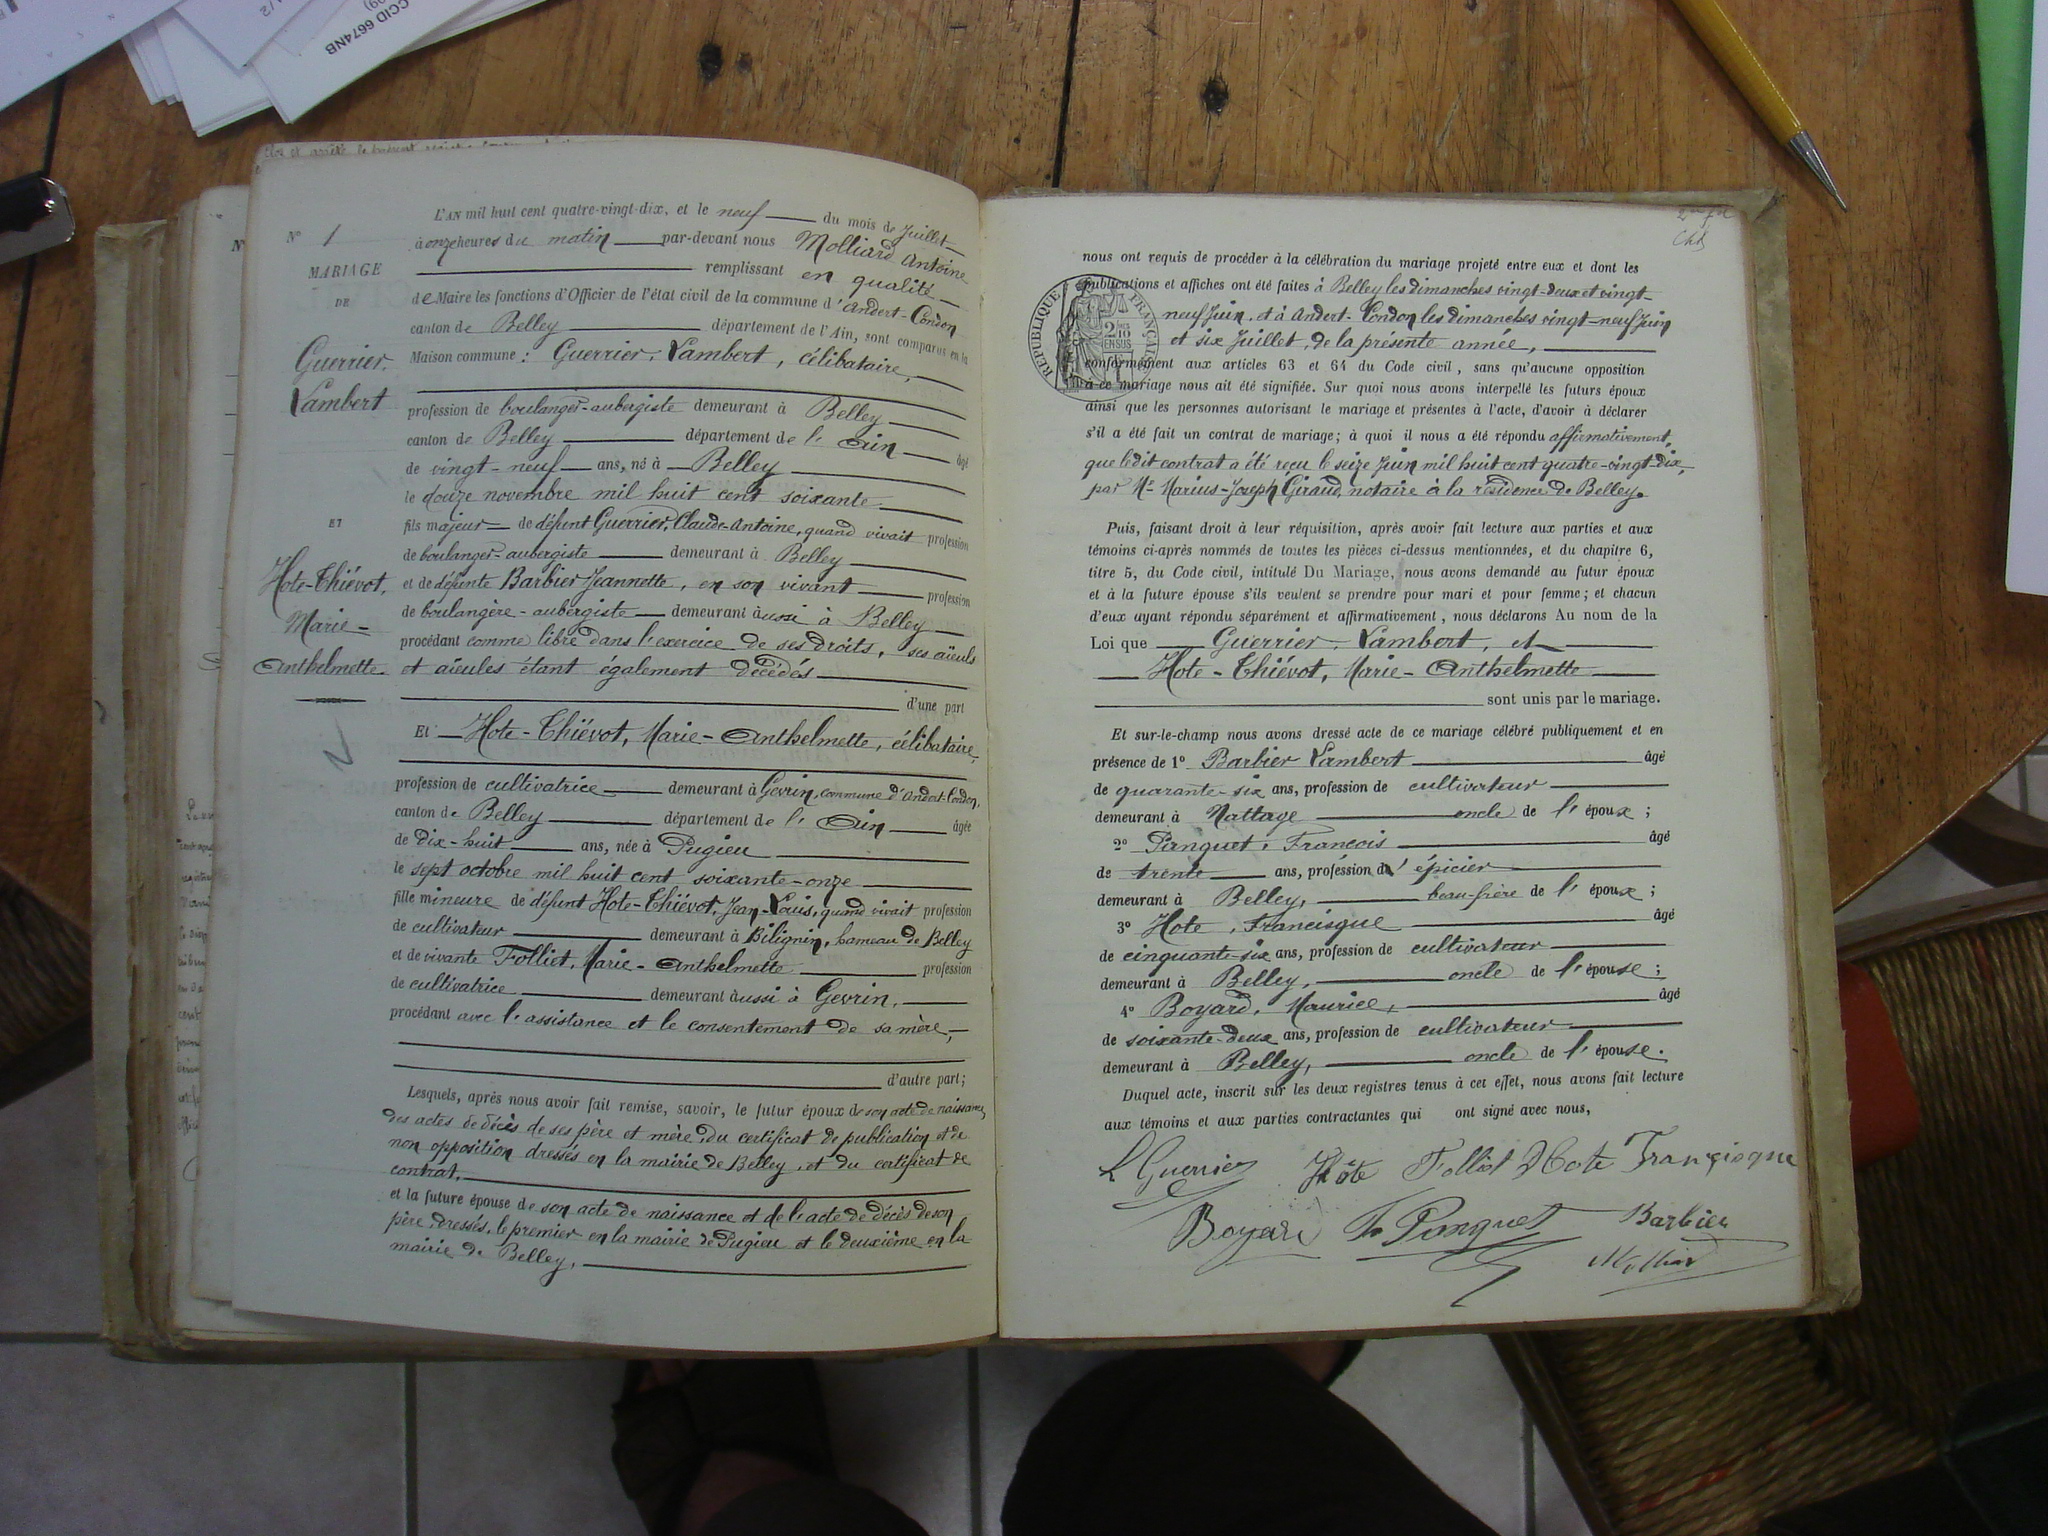 CCID 6674NB
N° 1
MARIAGE
DE
Guerrier,
Lambert
ET
Hote-Thiévot,
Marie-
Anthelmette
L'AN mil huit cent quatre-vingt-dix, et le neuf du mois de Juillet
à onze heures du matin par-devant nous Molliard Antoine
remplissant en qualité
de Maire les fonctions d'Officier de l'état civil de la commune d'Andert-Condon
canton de Belley département de l'Ain, sont comparus en la
Maison commune : Guerrier, Lambert, célibataire,
profession de boulanger-aubergiste demeurant à Belley
canton de Belley département de l'Ain âgé
de vingt-neuf ans, né à Belley
le douze novembre mil huit cent soixante
fils majeur de défunt Guerrier, Claude-Antoine, quand vivait profession
de boulanger-aubergiste demeurant à Belley
et de défunte Barbier Jeannette, en son vivant profession
de boulangère-aubergiste demeurant aussi à Belley
procédant comme libre dans l'exercice de ses droits, ses aïeuls
et aïeules étant également décédés
d'une part
Et Hote-Thiévot, Marie-Anthelmette, célibataire,
profession de cultivatrice demeurant à Gevrin, commune d'Andert-Condon,
canton de Belley département de l'Ain âgée
de dix-huit ans, née à Pugieu
le sept octobre mil huit cent soixante-onze
fille mineure de défunt Hote-Thiévot, Jean-Louis, quand vivait profession
de cultivateur demeurant à Bilignin, hameau de Belley
et de vivante Folliet, Marie-Anthelmette profession
de cultivatrice demeurant aussi à Gevrin,
procédant avec l'assistance et le consentement de sa mère,
d'autre part;
Lesquels, après nous avoir fait remise, savoir, le futur époux de son acte de naissance,
des actes de décès de ses père et mère, du certificat de publication et de
non opposition dressés en la mairie de Belley, et du certificat de
contrat,
et la future épouse de son acte de naissance et de l'acte de décès de son
père, dressés, le premier en la mairie de Pugieu et le deuxième en la
mairie de Belley,
nous ont requis de procéder à la célébration du mariage projeté entre eux et dont les
publications et affiches ont été faites à Belley les dimanches vingt-deux et vingt-
neuf Juin, et à Andert-Condon les dimanches vingt-neuf Juin
et six Juillet, de la présente année,
RÉPUBLIQUE FRANÇAISE
2/10 EN SUS
conformément aux articles 63 et 64 du Code civil, sans qu'aucune opposition
à ce mariage nous ait été signifiée. Sur quoi nous avons interpellé les futurs époux
ainsi que les personnes autorisant le mariage et présentes à l'acte, d'avoir à déclarer
s'il a été fait un contrat de mariage; à quoi il nous a été répondu affirmativement,
que ledit contrat a été reçu le seize Juin mil huit cent quatre-vingt-dix,
par Me Marius-Joseph Giraud, notaire à la résidence de Belley.
Puis, faisant droit à leur réquisition, après avoir fait lecture aux parties et aux
témoins ci-après nommés de toutes les pièces ci-dessus mentionnées, et du chapitre 6,
titre 5, du Code civil, intitulé Du Mariage, nous avons demandé au futur époux
et à la future épouse s'ils veulent se prendre pour mari et pour femme; et chacun
d'eux ayant répondu séparément et affirmativement, nous déclarons Au nom de la
Loi que Guerrier, Lambert, et
Hote-Thiévot, Marie-Anthelmette
sont unis par le mariage.
Et sur-le-champ nous avons dressé acte de ce mariage célébré publiquement et en
présence de 1° Barbier Lambert âgé
de quarante-six ans, profession de cultivateur
demeurant à Nattage oncle de l'époux ;
2° Panguet, François âgé
de trente ans, profession d'épicier
demeurant à Belley, beau-frère de l'époux ;
3° Hote, Francisque âgé
de cinquante-six ans, profession de cultivateur
demeurant à Belley, oncle de l'épouse ;
4° Boyard, Maurice, âgé
de soixante-deux ans, profession de cultivateur
demeurant à Belley, oncle de l'épouse.
Duquel acte, inscrit sur les deux registres tenus à cet effet, nous avons fait lecture
aux témoins et aux parties contractantes qui ont signé avec nous,
L Guerrier Hôte Folliet Hote Françisque
Boyard F Panguet Barbier
Molliard